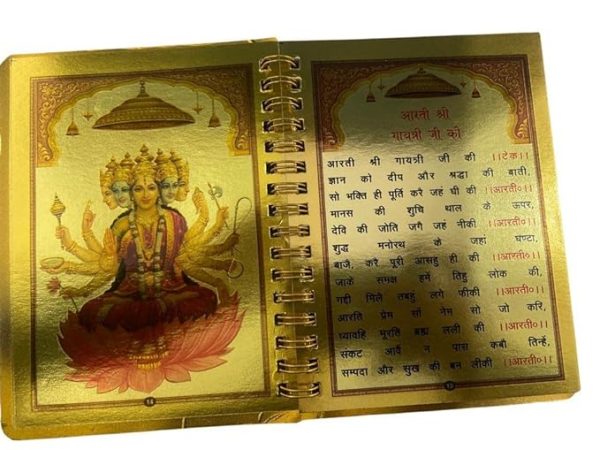 आरती श्री
गायत्री जी की
आरती श्री गायत्री जी की ।।टेक।।
ज्ञान को दीप और श्रद्धा की बाती,
सो भक्ति ही पूर्ति करै जहं घी की ।।आरती०।।
मानस की शुचि थाल के ऊपर,
देवि की जोति जगै जहं नीकी ।।आरती०।।
शुद्ध मनोरथ के जहा घण्टा,
बाजै, करै पूरी आसहु ही की ।।आरती०।।
जाके समक्ष हमें तिहु लोक की,
गद्दी मिले तबहु लगे फीकी ।।आरती०।।
आरति प्रेम सों नेम सो जो करि,
ध्यावहि मूरति ब्रह्म लली की ।।आरती०।।
संकट आवैं न पास कबी तिन्हें,
सम्पदा और सुख की बन लीकी ।।आरती०।।
14